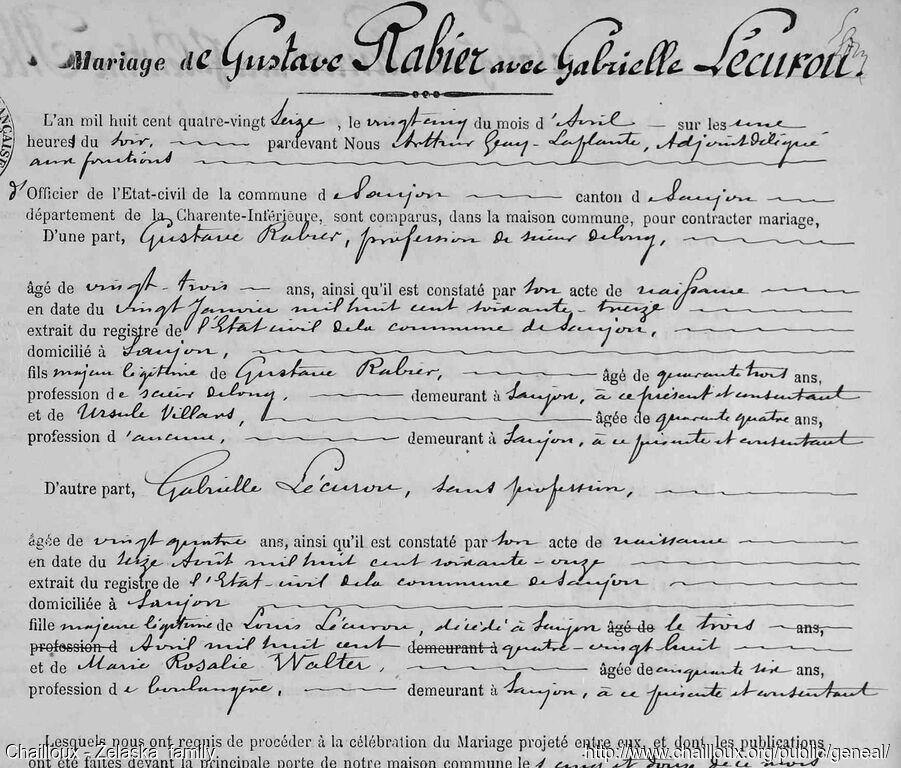 Mariage de Gustave Rabier avec Gabrielle Lécurou.
L'an mil huit cent quatre-vingt seize, le vingt cinq du mois d'Avril sur les une
heures du soir, pardevant Nous Arthur Geay-Laplante, Adjoint délégué
aux fontions
d'Officier de l'Etat-civil de la commune de Saujon canton de Saujon
département de la Charente-Inférieure, sont comparus, dans la maison commune, pour contracter mariage,
D'une part, Gustave Rabier, profession de scieur de long,
âgé de vingt-trois ans, ainsi qu'il est constaté par son acte de naissance
en date du vingt Janvier mil huit cent soixante-treize
extrait du registre de l'Etat civil de la commune de Saujon,
domicilié à Saujon,
fils majeur légitime de Gustave Rabier, âgé de quarante trois ans,
profession de scieur de long, demeurant à Saujon, à ce présent et consentant
et de Ursule Villars, âgée de quarante quatre ans,
profession d'aucune, demeurant à Saujon, à ce présente et consentant
D'autre part, Gabrielle Lécurou, sans profession,
âgée de vingt quatre ans, ainsi qu'il est constaté par son acte de naissance
en date du seize Août mil huit cent soixante-onze
extrait du registre de l'Etat-civil de la commune de Saujon
domiciliée à Saujon
fille majeure légitime de Louis Lécurou, décédé à Saujon âgé de le trois ans,
profession d Avril mil huit cent demeurant à quatre-vingt huit
et de Marie Rosalie Walter, âgée de cinquante six ans,
profession de boulangère, demeurant à Saujon, à ce présente et consentant
Lesquels nous ont requis de procéder à la célébration du Mariage projeté entre eux, et dont les publications
ont été faites devant la principale porte de notre maison commune les cinq et douze de ce mois
Chailloux - Zelaska family
http://www.chailloux.org/public/geneal/